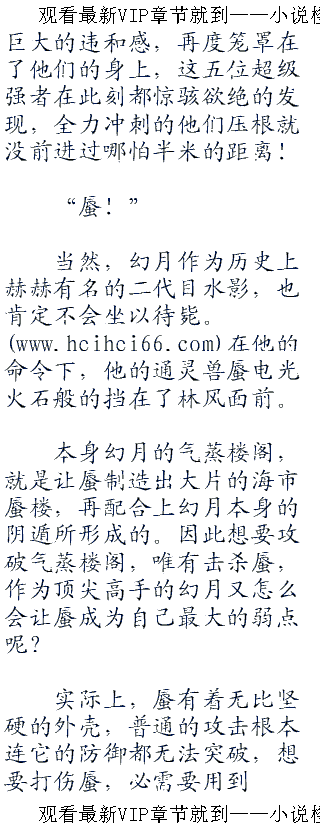 观看最新VIP章节就到——小说检
巨大的违和感，再度笼罩在
了他们的身上，这五位超级
强者在此刻都惊骇欲绝的发
现，全力冲刺的他们压根就
没前进过哪怕半米的距离！
“蜃！”
当然，幻月作为历史上
赫赫有名的二代目水影，也
肯定不会坐以待毙。
(www.hcihci66.com)在他的
命令下，他的通灵兽蜃电光
火石般的挡在了林风面前。
本身幻月的气蒸楼阁，
就是让蜃制造出大片的海市
蜃楼，再配合上幻月本身的
阴遁所形成的。因此想要攻
破气蒸楼阁，唯有击杀蜃，
作为顶尖高手的幻月又怎么
会让蜃成为自己最大的弱点
呢？
实际上，蜃有着无比坚
硬的外壳，普通的攻击根本
连它的防御都无法突破，想
要打伤蜃，必需要用到
观看最新VIP章节就到——小说检